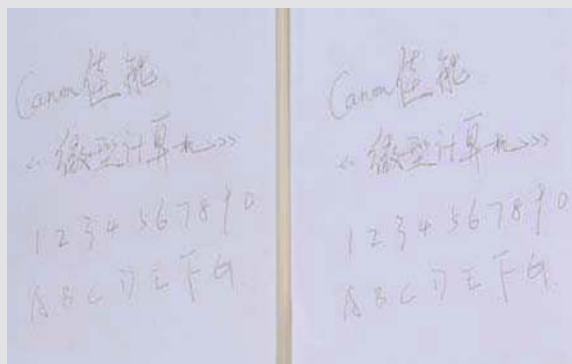 Canon佳能
《微型计算机》
1234567890
ABCDEFG
Canon佳能
《微型计算机》
1234567890
ABCDEFG